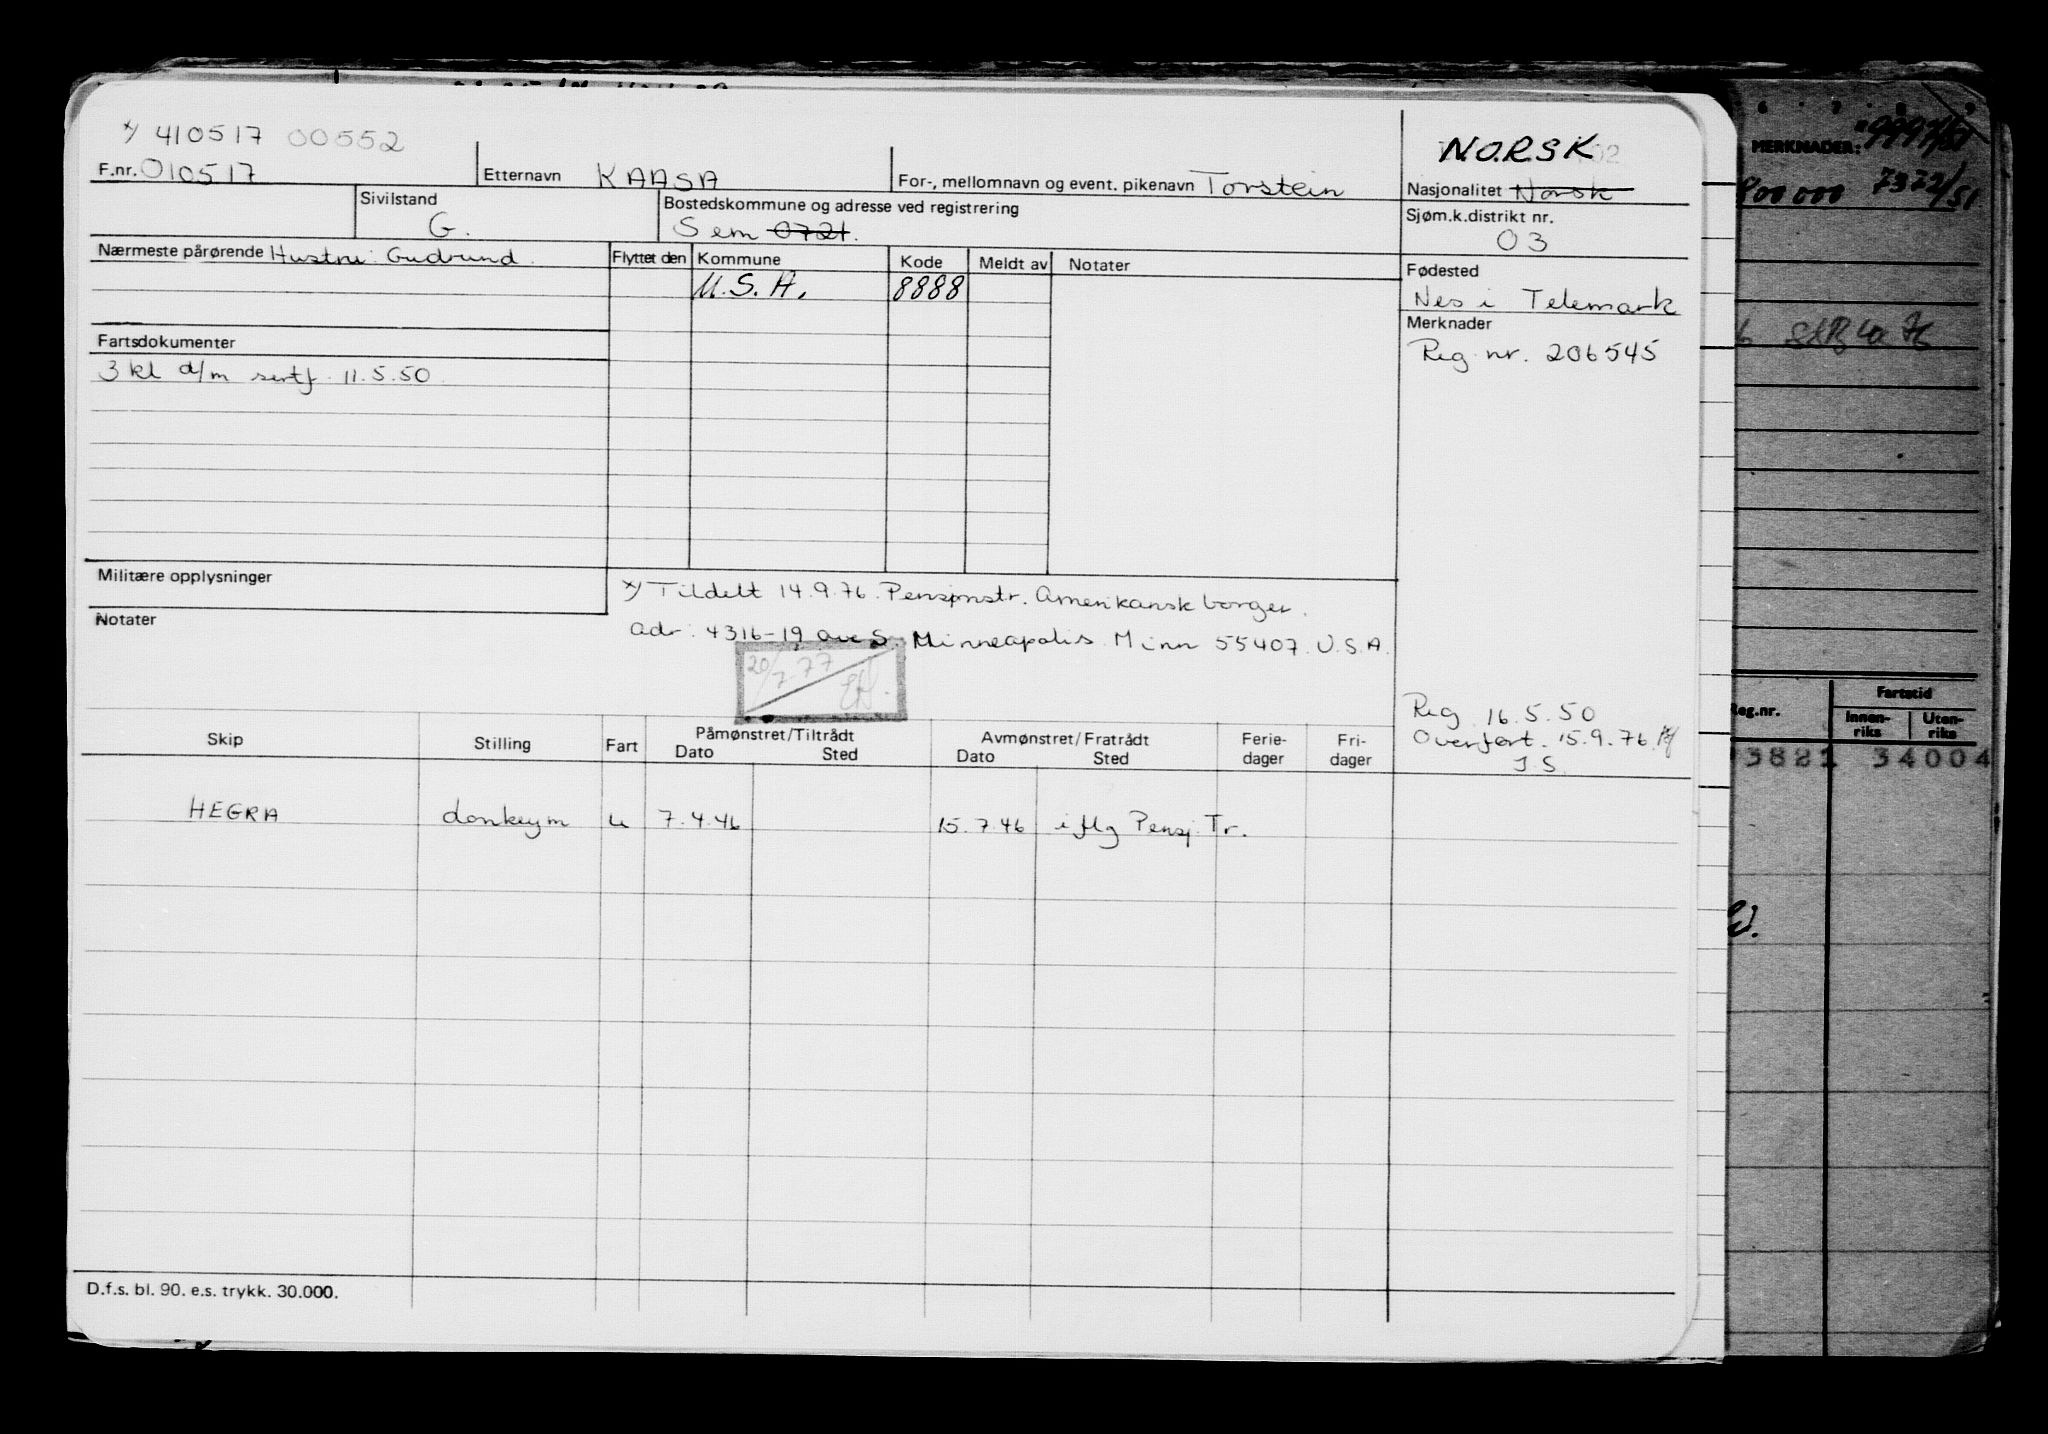 *) 410517 00552
F.nr. 010517
Etternavn KAASA
For-, mellomnavn og event. pikenavn Torstein
NORSK
Nasjonalitet Norsk
Sivilstand
G.
Bostedskommune og adresse ved registrering
Sem 0721.
Sjøm.k.distrikt nr.
03
Nærmeste pårørende Hustru: Gudrund.
Flyttet den Kommune Kode Meldt av Notater
U.S.A. 8888
Fødested
Nes i Telemark
Merknader
Reg. nr. 206545
Fartsdokumenter
3 kl d/m sertf. 11.5.50.
Militære opplysninger
*) Tildelt 14.9.76. Pensjonstr. Amerikansk borger.
Notater
adr: 4316-19 ave S. Minneapolis. Minn 55407. U.S.A.
20/7.77
Reg. 16.5.50
Overført. 15.9.76.
J.S.
Skip Stilling Fart Påmønstret/Tiltrådt Avmønstret/Fratrådt Ferie-dager Fri-dager
Dato Sted Dato Sted
HEGRA donkeym u 7.4.46 15.7.46 iflg Pensj. Tr.
D.f.s. bl. 90. e.s. trykk. 30.000.
6 7 8 9
MERKNADER: 9997/51
800 000 7372/51
Reg.nr. Fartstid
Innen-riks Uten-riks
3821 34004